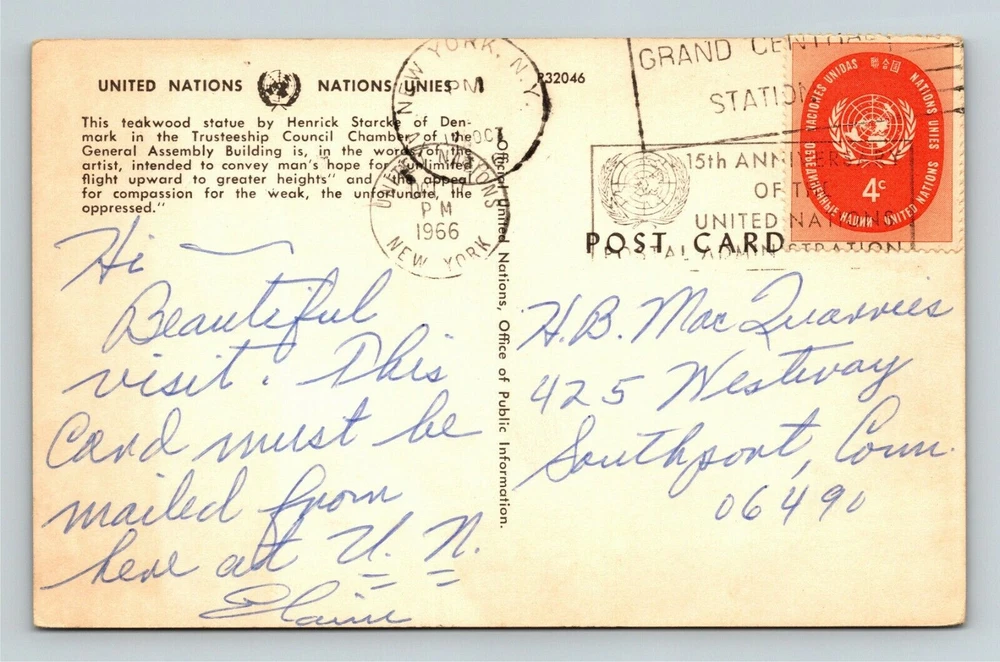 UNITED NATIONS NATIONS UNIES
P32046
This teakwood statue by Henrick Starcke of Den-
mark in the Trusteeship Council Chamber of the
General Assembly Building is, in the words of the
artist, intended to convey man's hope for "unlimited
flight upward to greater heights" and "the appeal
for compassion for the weak, the unfortunate, the
oppressed."
Hi —
Beautiful
visit. This
Card must be
mailed from
here at U. N.
Elaine
Official United Nations, Office of Public Information.
NEW YORK, N.Y.
PM
OCT
UNITED NATIONS
PM
1966
NEW YORK
GRAND CENTRAL
STATION
15th ANNIVERS
OF THE
UNITED NATIONS
POSTAL ADMINISTRATION
NACIONES UNIDAS 聯合國 NATIONS UNIES
UNITED NATIONS ОБЪЕДИНЕННЫЕ НАЦИИ
4c
POST CARD
H.B. Mac Quarries
425 Westway
Southport, Conn.
06490